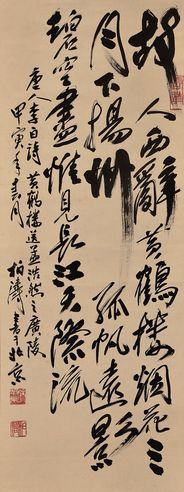 故人西辭黃鶴樓煙花三
月下揚州孤帆遠影
碧空盡惟見長江天際流
唐人李白詩黃鶴樓送孟浩然之廣陵
甲寅年月柏濤書于北京